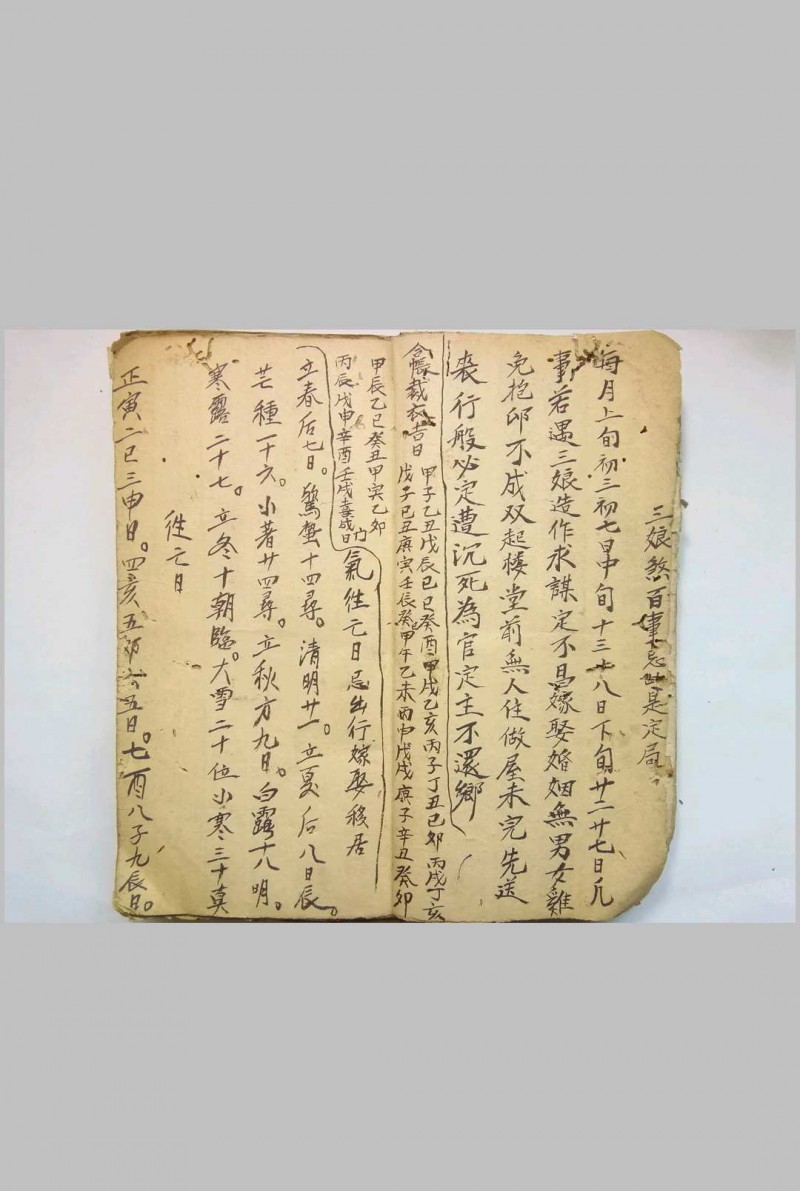 三娘煞百事忌此是定局
每月上旬初三初七日中旬十三十八日下旬廿二廿七日凡
事若遇三娘造作求謀定不昌嫁娶婚姻無男女雞
免抱卵不成双起楼堂前無人住做屋未完先送
喪行般必定遭沉死為官定主不還鄉
合帳裁衣吉日
甲子乙丑戊辰己巳癸酉甲戌乙亥丙子丁丑己卯丙戌丁亥
戊子己丑庚寅壬辰癸巳甲午乙未丙申戊戌庚子辛丑癸卯
甲辰乙巳癸丑甲寅乙卯
丙辰戊申辛酉壬戌日
氣徃亡日忌出行嫁娶移居
立春后七日。驚蟄十四尋。清明廿一。立夏后八日辰。
芒種一十六。小暑廿四尋。立秋方九日。白露十八明。
寒露二十七。立冬十朝臨。大雪二十位小寒三十真
徃亡日
正寅二巳三申日。四亥五卯六五日。七酉八子九辰日。